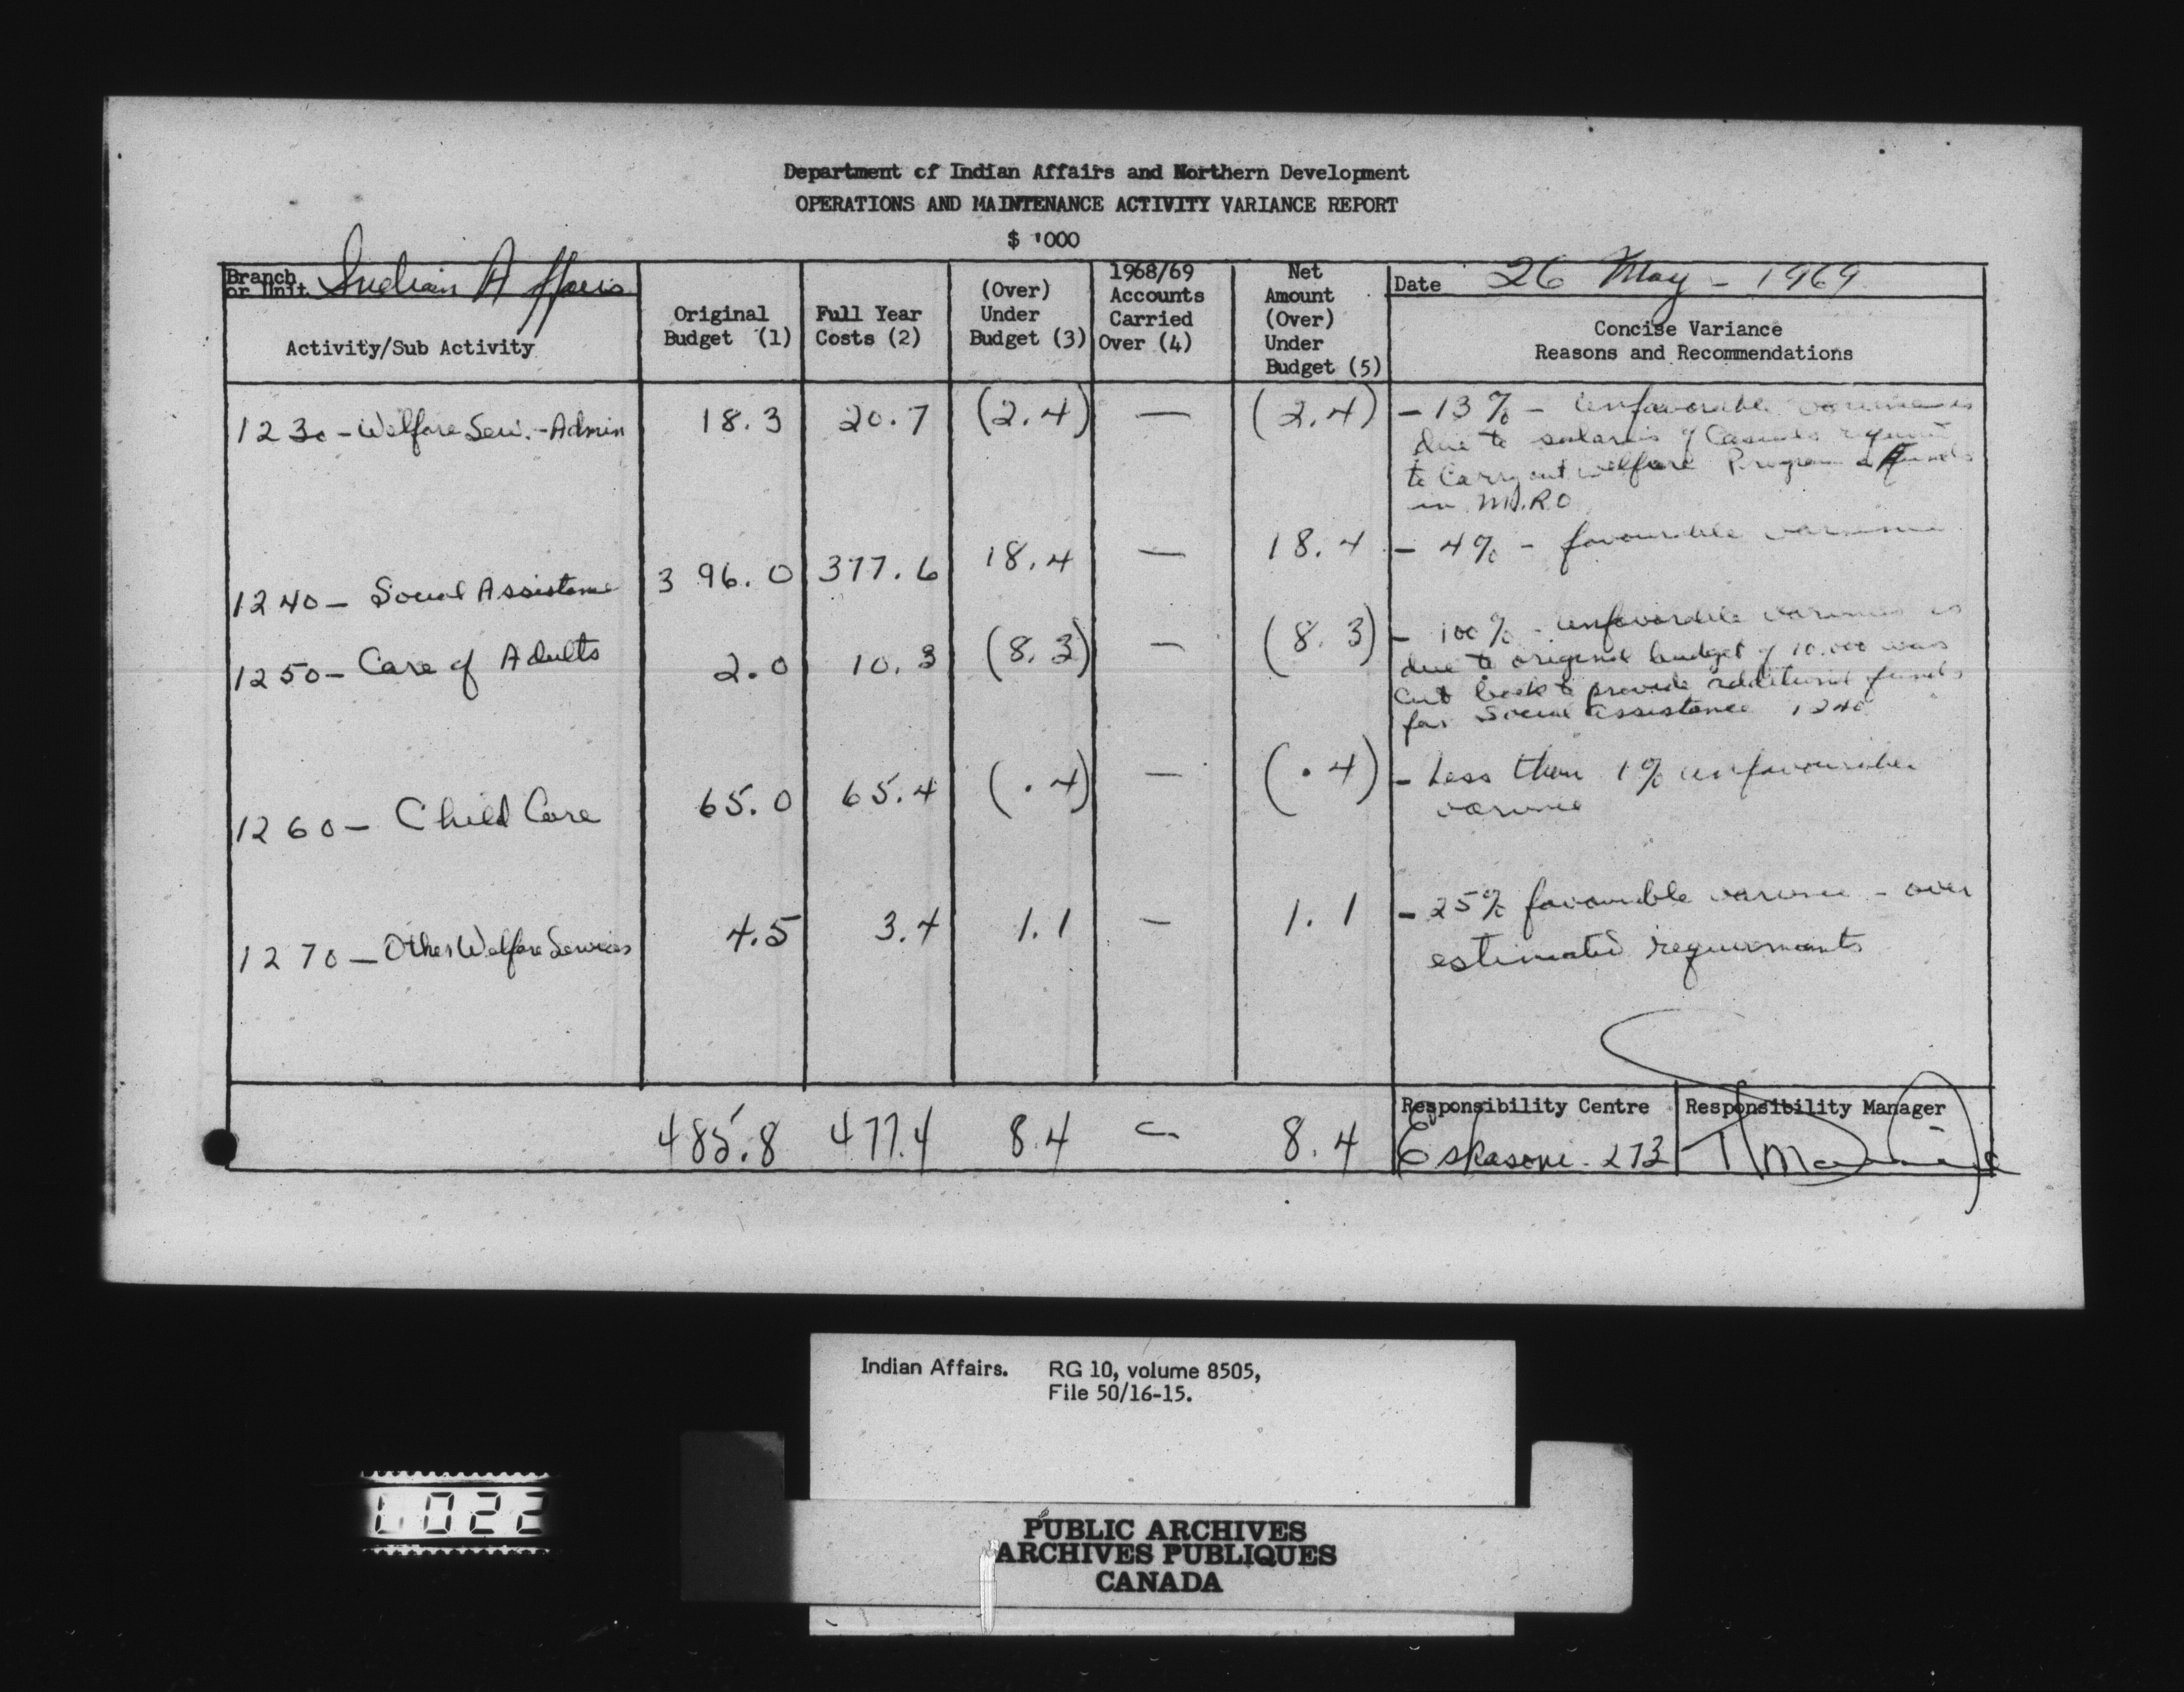 Department of Indian Affairs and Northern Development
OPERATIONS AND MAINTENANCE ACTIVITY VARIANCE REPORT
$ '000
Branch or Unit Indian Affairs
Date 26 May - 1969
Activity/Sub Activity
Original Budget (1)
Full Year Costs (2)
(Over) Under Budget (3)
1968/69 Accounts Carried Over (4)
Net Amount (Over) Under Budget (5)
Concise Variance
Reasons and Recommendations
1230 - Welfare Serv. - Admin 18.3 20.7 (2.4) — (2.4) - 13% - unfavorable variance is
due to salaries of Casuals
to Carry out welfare Program funds
in M.R.O
1240 - Social Assistance 396.0 377.6 18.4 — 18.4 - 4% - favourable variance
1250 - Care of Adults 2.0 10.3 (8.3) — (8.3) - 100% - unfavorable variance is
due to original budget of 10.000 was
cut back to provide additional funds
for Social assistance 1240
1260 - Child Care 65.0 65.4 (.4) — (.4) - Less than 1% unfavourable
variance
1270 - Other Welfare Services 4.5 3.4 1.1 — 1.1 - 25% favourable variance - over
estimated requirements
485.8 477.4 8.4 — 8.4
Responsibility Centre
Eskasoni - 273
Responsibility Manager
Indian Affairs. RG 10, volume 8505,
File 50/16-15.
0022
PUBLIC ARCHIVES
ARCHIVES PUBLIQUES
CANADA